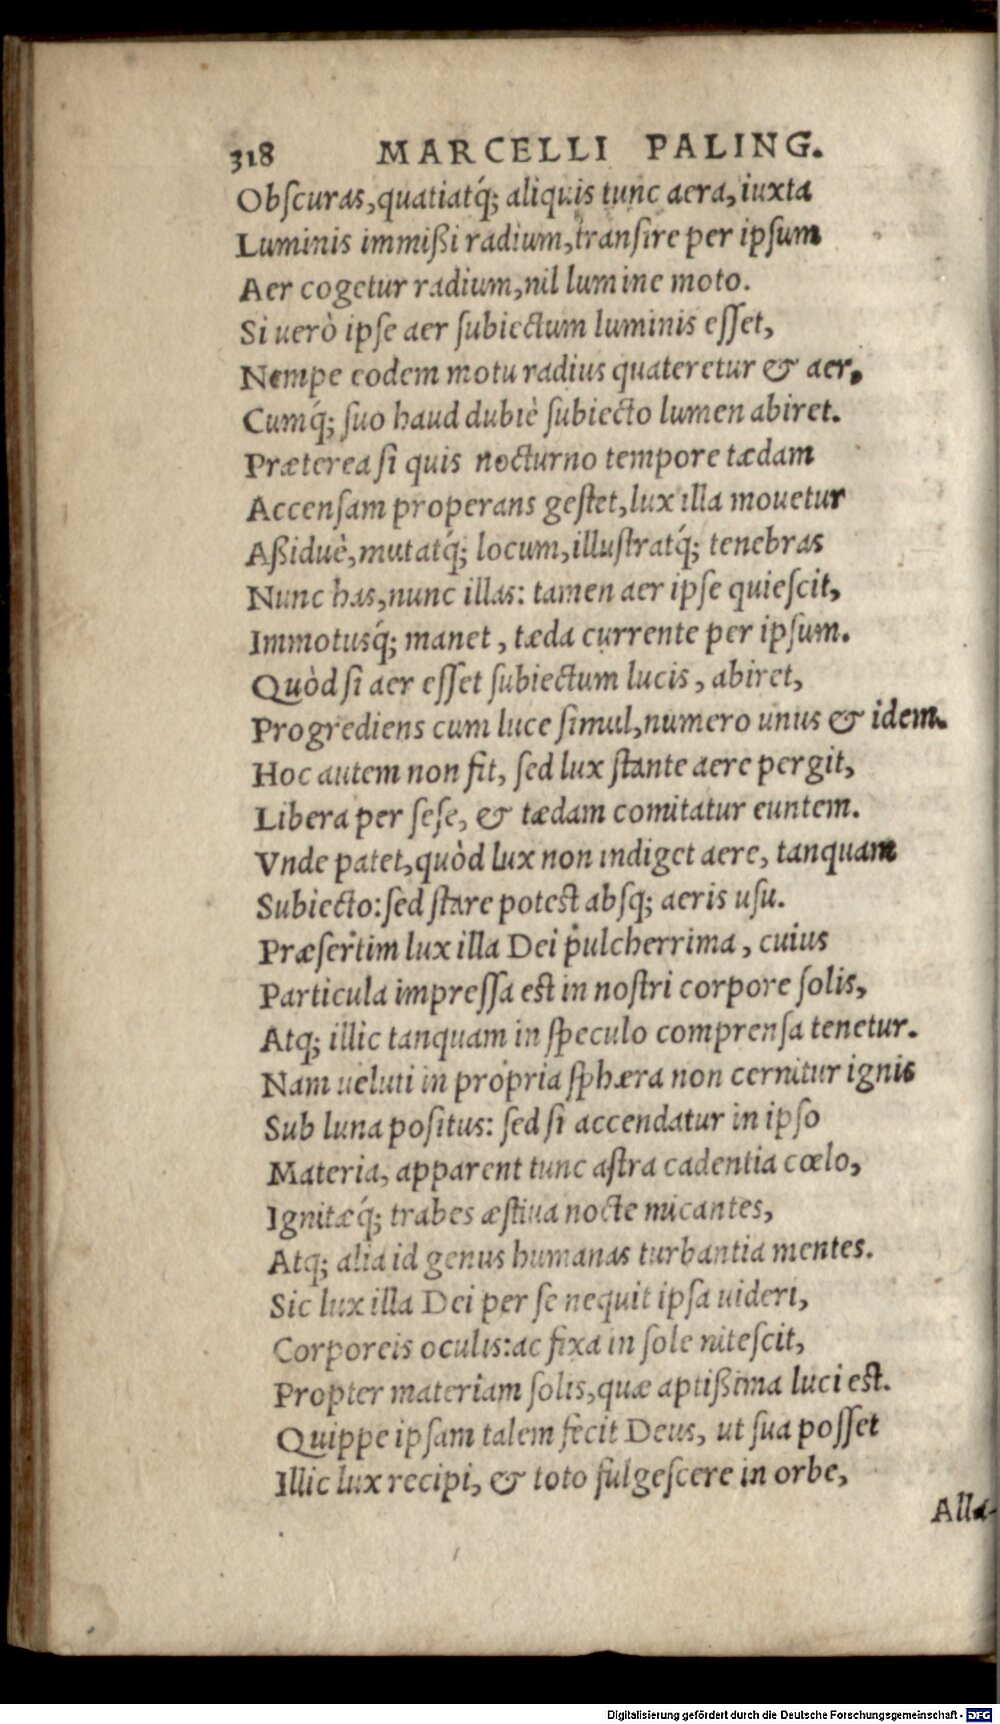 318 MARCELLI PALING.
Obſcuras, quatiatq́; aliquis tunc aera, iuxta
Luminis immißi radium, tranſire per ipſum
Aer cogetur radium, nil lumine moto.
Si uerò ipſe aer ſubiectum luminis eſſet,
Nempe eodem motu radius quateretur & aer,
Cumq́; ſuo haud dubiè ſubiecto lumen abiret.
Præterea ſi quis nocturno tempore tædam
Accenſam properans geſtet, lux illa mouetur
Aßiduè, mutatq́; locum, illuſtratq́; tenebras
Nunc has, nunc illas: tamen aer ipſe quieſcit,
Immotusq́; manet, tæda currente per ipſum.
Quòd ſi aer eſſet ſubiectum lucis, abiret,
Progrediens cum luce ſimul, numero unus & idem.
Hoc autem non fit, ſed lux ſtante aere pergit,
Libera per ſeſe, & tædam comitatur euntem.
Vnde patet, quòd lux non indiget aere, tanquam
Subiecto: ſed ſtare poteſt abſq; aeris uſu.
Præſertim lux illa Dei pulcherrima, cuius
Particula impreſſa eſt in noſtri corpore ſolis,
Atq; illic tanquam in ſpeculo comprenſa tenetur.
Nam ueluti in propria ſphæra non cernitur ignis
Sub luna poſitus: ſed ſi accendatur in ipſo
Materia, apparent tunc aſtra cadentia cœlo,
Ignitæq́; trabes æſtiua nocte micantes,
Atq; alia id genus humanas turbantia mentes.
Sic lux illa Dei per ſe nequit ipſa uideri,
Corporeis oculis: ac fixa in ſole niteſcit,
Propter materiam ſolis, quæ aptißima luci eſt.
Quippe ipſam talem fecit Deus, ut ſua poſſet
Illic lux recipi, & toto fulgeſcere in orbe,
Alla-
Digitalisierung gefördert durch die Deutsche Forschungsgemeinschaft - DFG